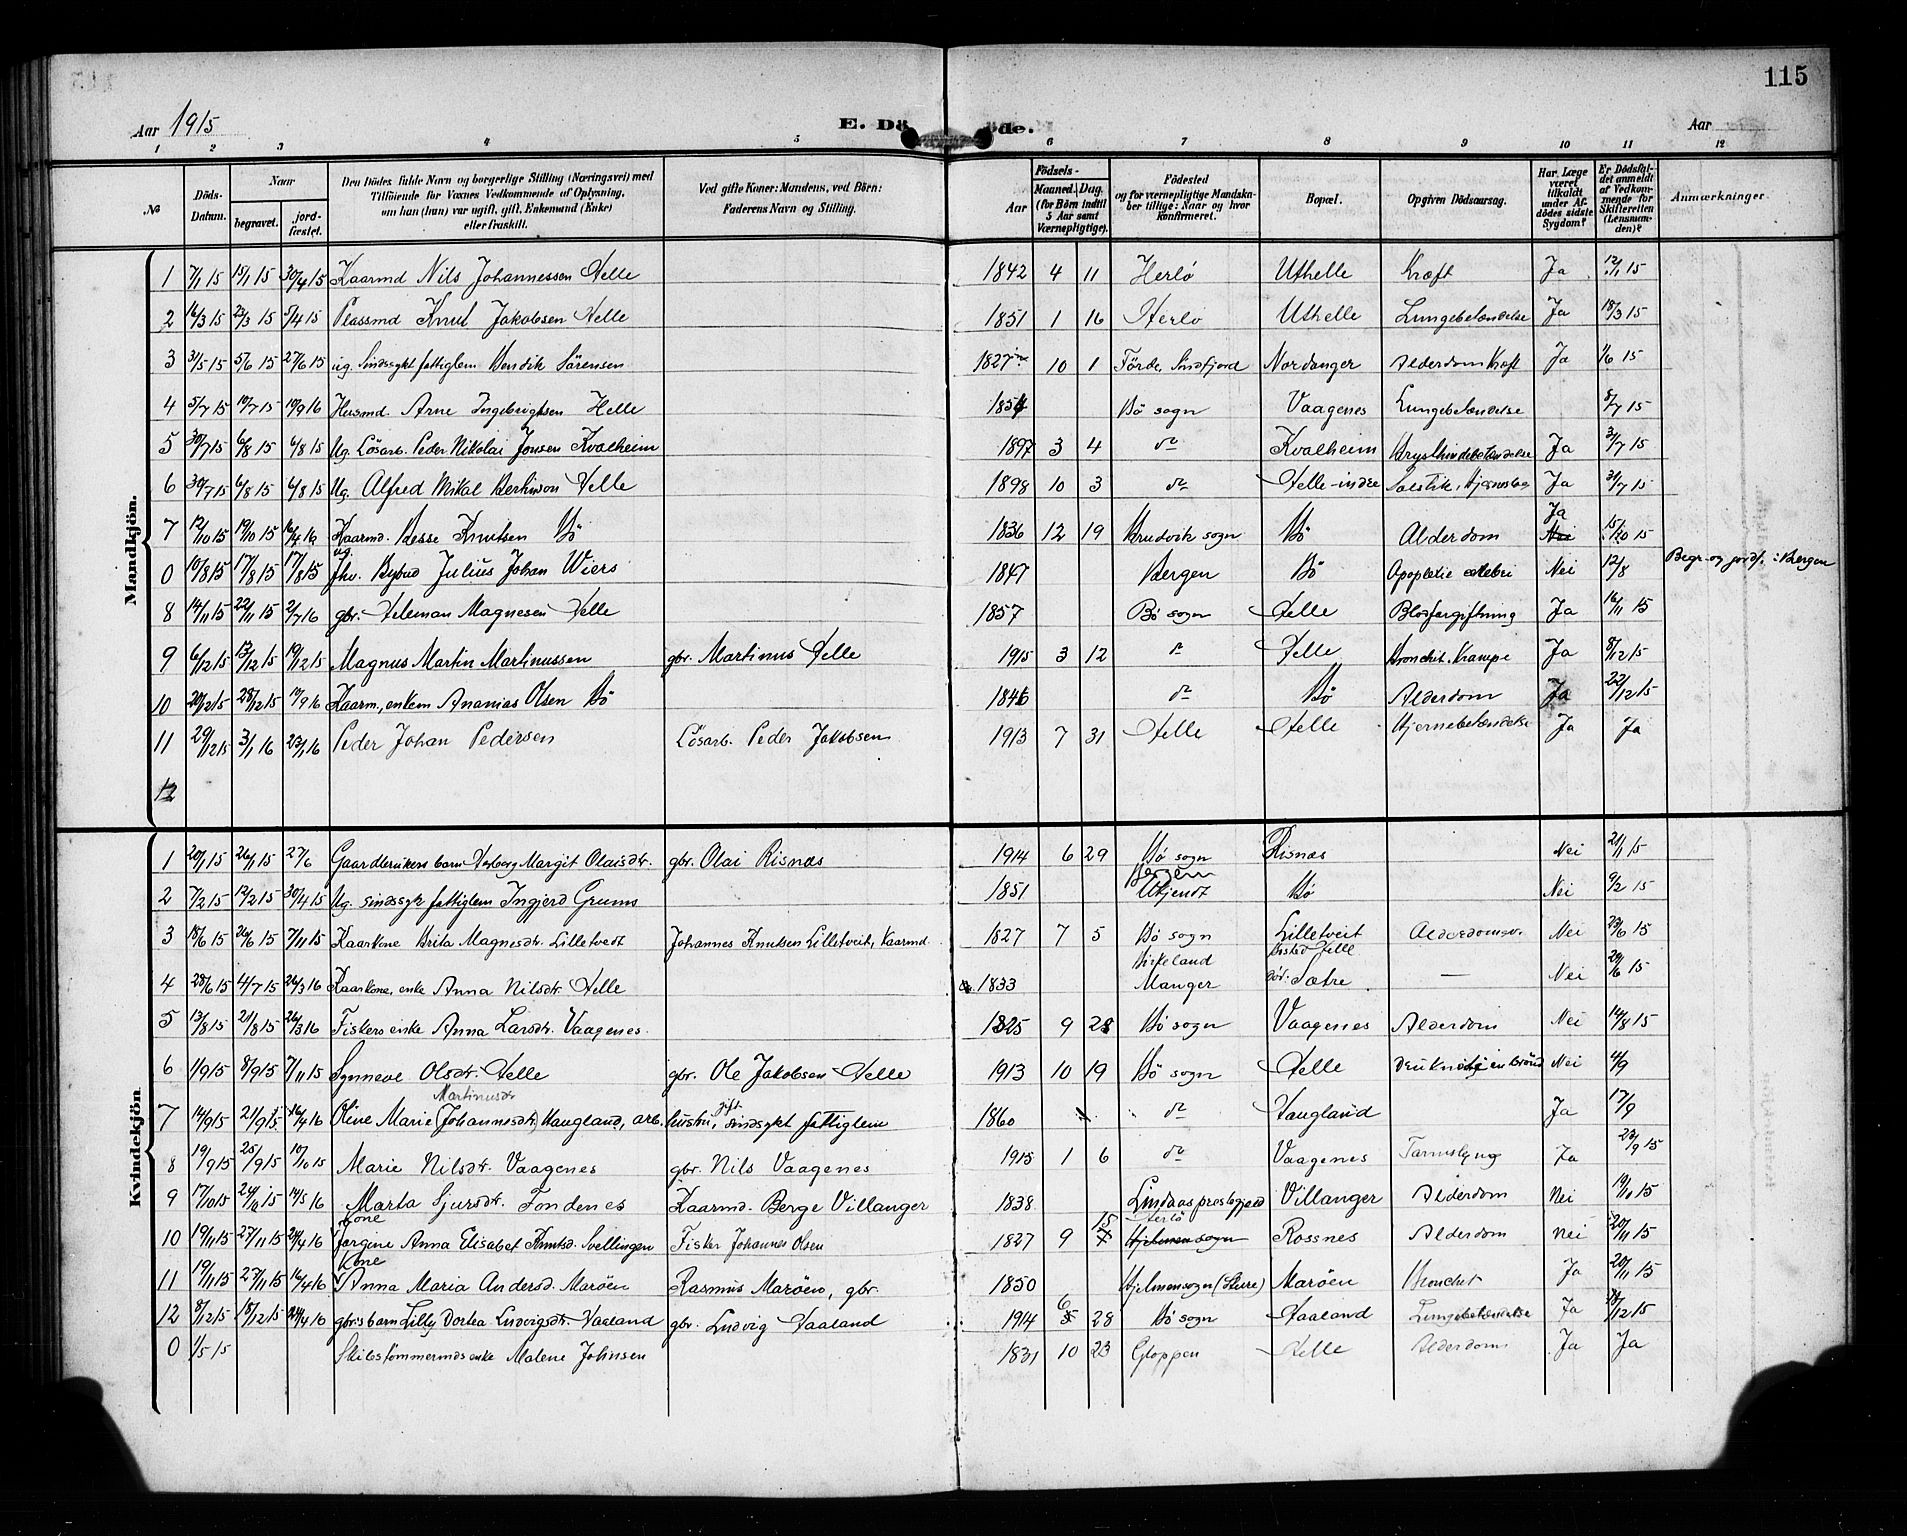 115
Aar 1915
E. Döde.
Aar
1 2 3 4 5 6 7 8 9 10 11 12
№
Döds-Datum.
Naar
begravet.
jordfæstet.
Den Dödes fulde Navn og borgerlige Stilling (Næringsvei) med Tilföiende for Voxnes Vedkommende af Oplysning, om han (hun) var ugift, gift, Enkemand (Enke) eller fraskilt.
Ved gifte Koner: Mandens, ved Börn: Faderens Navn og Stilling.
Födsels-
Aar
Maaned. Dag. (for Börn indtil 5 Aar samt Værnepligtige).
Födested og for værnepligtige Mandskaber tillige: Naar og hvor Konfirmeret.
Bopæl.
Opgiven Dödsaarsag.
Har Læge været tilkaldt under Afdödes sidste Sygdom?
Er Dödsfaldet anmeldt af Vedkommende for Skifteretten (Lensmanden)?
Anmærkninger.
Mandkjön.
1 7/1 15 15/1 15 30/4 15 Kaarmd Nils Johannessen Helle 1842 4 11 Herlö Uthelle Kræft Ja 12/1 15
2 16/3 15 23/3 15 5/4 15 Plassmd Knut Jakobsen Helle 1851 1 16 Herlö Uthelle Lungebetændelse Ja 18/3 15
3 31/5 15 5/6 15 27/6 15 ug. Sindssykt fattiglem Bendik Sörensen 1827 10 1 Förde, Sndfjord Nordanger Alderdom Kræft Ja 1/6 15
4 5/7 15 10/7 15 10/9 16 Husmd. Arne Ingebrigtsen Helle 1854 Bö sogn Vaagenes Lungebetændelse 8/7 15
5 30/7 15 6/8 15 6/8 15 Ug. Lösarb. Peder Nikolai Jonsen Kvalheim 1897 3 4 do Kvalheim Brysthindebetændelse Ja 31/7 15
6 30/7 15 6/8 15 6/8 15 Ug. Alfred Mikal Bertinson Helle 1898 10 3 do Helle-indre Solstik, Hjernebe Ja 31/7 15
7 12/10 15 19/10 15 16/4 16 Kaarmd. Besse Knutsen Bö 1836 12 19 Bruvik sogn Bö Alderdom Ja 15/10 15
0 10/8 15 17/8 15 17/8 15 ug. fhv. Bybud Julius Johan Wiers 1847 Bergen Bö Apoplexie cerebri Nei 12/8 Begr. og jordf. i Bergen
8 14/11 15 22/11 15 2/7 16 gbr. Teleman Magnesen Helle 1857 Bö sogn Helle Blodforgiftning Ja 16/11 15
9 6/12 15 13/12 15 19/12 15 Magnus Martin Martinussen gbr. Martinus Helle 1915 3 12 do Helle Bronchit. Krampe Ja 8/12 15
10 20/12 15 28/12 15 10/9 16 Kaarm., enkem Ananias Olsen Bö 1846 do Bö Alderdom Ja 22/12 15
11 29/12 15 3/1 16 23/1 16 Peder Johan Pedersen Lösarb. Peder Jakobsen 1913 7 31 Helle Helle Hjernebetændelse Ja Ja
12
Kvindekjön
1 20/1 15 26/1 15 27/6 Gaardbrukers barn Herborg Margit Olaisdtr. gbr. Olai Risnæs 1914 6 29 Bö sogn Risnæs Nei 21/1 15
2 7/2 15 12/2 15 30/4 15 Ug. sindssyk fattiglem Ingjerd Grums 1851 Bergen Ukjendt Bö Nei 9/2 15
3 18/6 15 26/6 15 7/11 15 Kaarkone Brita Magnesdtr. Lilletvedt Johannes Knutsen Lilletveit, Kaarmd. 1827 7 5 Bö sogn Lilletveit Alderdomssv. Nei 23/6 15
4 28/6 15 4/7 15 26/3 16 Kaarkone, enke Anna Nilsdtr. Helle 1833 Birkeland Manger Bosted Helle Sætre — Nei 29/6 15
5 13/8 15 21/8 15 26/3 16 Fiskers enke Anna Larsdtr. Vaagenes 1825 9 28 Bö sogn Vaagenes Alderdom Nei 14/8 15
6 1/9 15 8/9 15 7/11 15 Synneve Olsdtr. Helle gbr. Ole Jakobsen Helle 1913 10 19 Bö sogn Helle Druknet i en brönd Nei 4/9
7 14/9 15 21/9 15 16/4 16 Oline Marie (Johannesdtr.) Martinusdtr Haugland, arb. hustru, gift sindsykt fattiglem 1860 do Haugland Ja 17/9
8 19/9 15 25/9 15 10/10 15 Marie Nilsdtr. Vaagenes gbr. Nils Vaagenes 1915 1 6 do Vaagenes Tarmslyng Ja 23/9 15
9 17/10 15 24/10 15 14/5 16 Marta Sjursdtr. Fondenes Kaarmd. Berge Villanger 1838 Lindaas prestegjeld Villanger Alderdom Nei 19/10 15
10 19/11 15 27/11 15 24/4 16 Kone Jorgine Anna Elisabet Knutsd. Svellingen Fisker Johannes Olsen 1827 9 15 Herlö Hjelmen sogn Rossnes Alderdom Nei 20/11 15
11 19/11 15 27/11 15 16/4 16 Kone Anna Maria Andersd. Maröen Rasmus Maröen, gbr. 1850 Hjelmensogn (Sture) Maröen Bronchit Ja 20/11 15
12 8/12 15 18/12 15 24/4 16 gbr's barn Lilly Dortea Ludvigsdtr. Haaland gbr. Ludvig Haaland 1914 6 28 Bö sogn Haaland Lungebetændelse Ja 12 15
0 1/5 15 Skibstömmermds enke Malene Johnsen 1831 10 23 Gloppen Helle Alderdom Ja Ja